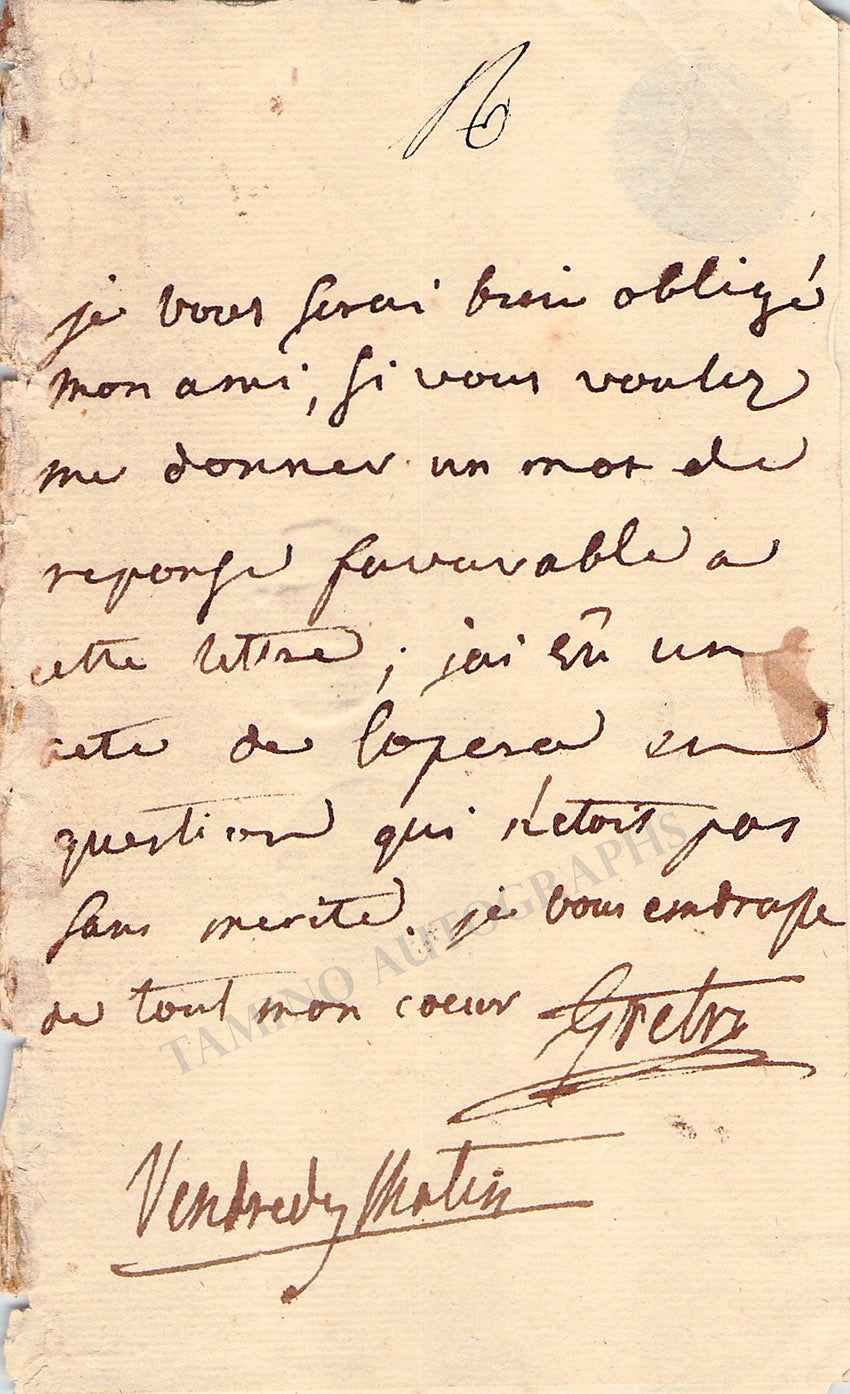 je vous serai bien obligé
mon ami, si vous voulez
me donner un mot de
reponse favorable a
cette lettre; jai eu un
acte de lopera en
question qui n'etoit pas
sans merite. je vous embrasse
de tout mon coeur Gretry
Vendredy Matin
TAMINO AUTOGRAPHS